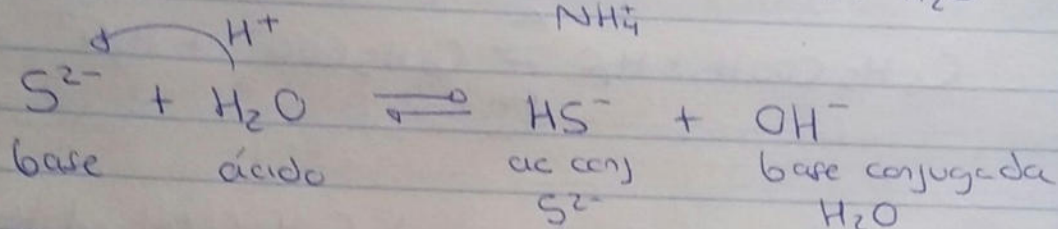 NH₄⁺
H⁺
S²⁻ + H₂O ⇌ HS⁻ + OH⁻
base ácido ac conj base conjugada
S²⁻ H₂O